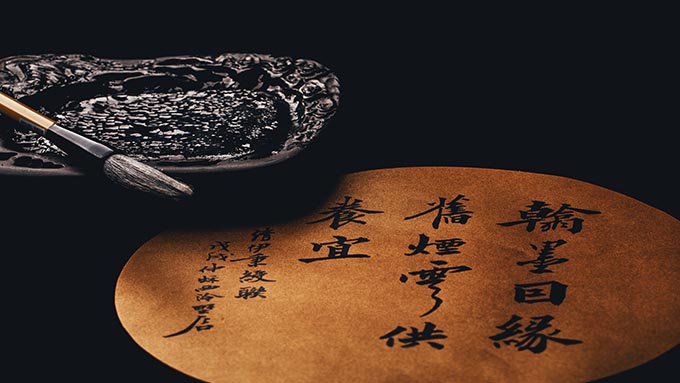 翰墨囙緣
舊煙雲供
養宜
清伊秉綬聯
戊戌仲秋西泠